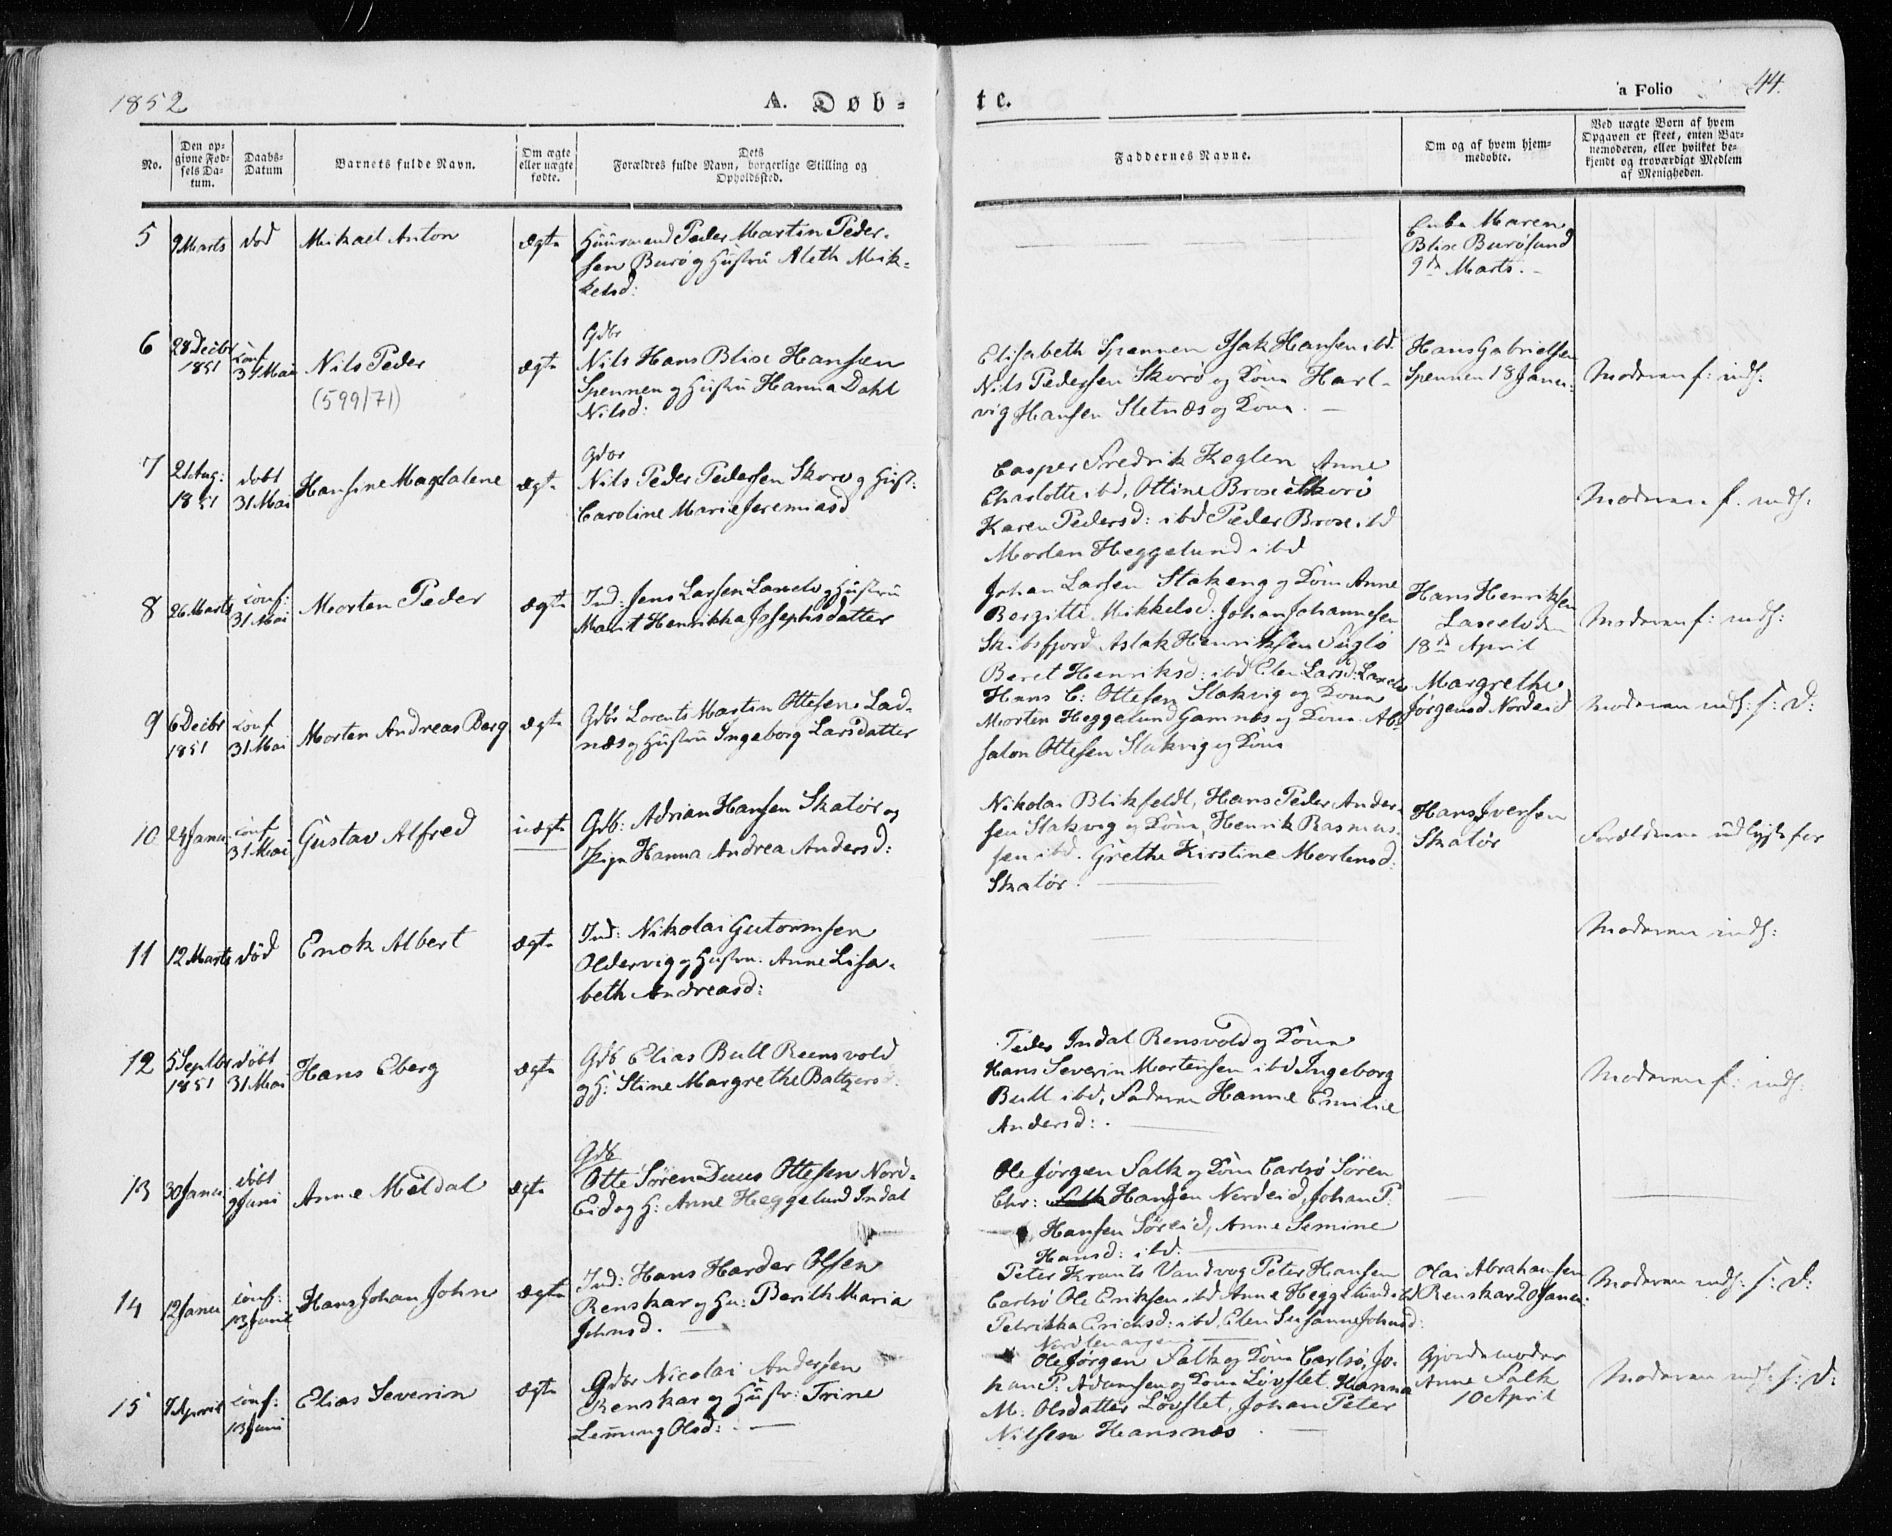 1852
A. Døb=
te.
a Folio 44.
No.
Den op-
givne Fød-
sels Da-
tum.
Daabs-
Datum
Barnets fulde Navn.
Om ægte
eller uægte
fødte.
Dets
Forældres fulde Navn, borgerlige Stilling og
Opholdssted.
Faddernes Navne.
Om og af hvem hjem-
medøbte.
Ved uægte Børn af hvem
Opgaven er skeet, enten Bar-
nemoderen, eller hvilket be-
kjendt og troværdigt Medlem
af Menigheden.
5
9 Marts
død
Mikael Anton
ægte
Huusmand Peder Martin Peder-
sen Burø og Hustru Aleth Mik-
kelsd:
Enke Maren
Blix Burøsund
9de Marts.
6
28 Decbr
1851
conf
31 Mai
Nils Peder
(599/71)
ægte
Gdbr
Nils Hans Blix Hanssen
Spennen og Hustru Hanna Dahl
Nilsd:
Elisabeth Spennen Isak Hansen ibd.
Nils Pedersen Skorø og Kone Hart-
vig Hansen Sletnæs og Kone.
Hans Gabrielsen
Spennen 18 Janu:
Moderen f: inds:
7
21 Aug:
1851
døbt
31 Mai
Hansine Magdalene
ægte
Gdbr
Nils Peder Pedersen Skorø og Hust:
Caroline Marie Jeremiasd
Casper Fredrik Keglen Anne
Charlotte ibd, Ottine Brose Skorø
Karen Pedersd: ibd Peder Brox ibd
Morten Heggelund ibd
Moderen f. inds:
8
26 Marts
conf:
31 Mai
Morten Peder
ægte
Ind: Jens Larsen Laxelv og Hustru
Marit Henrikka Josephsdatter
Johan Larsen Stakeng og Kone Anne
Bergitte Mikkelsd. Johan Johannesen
Skibsfjord Aslak Henriksen Fuglø
Beret Henriksd: ibd Elen Larsd: Laxelv
Hans Henriksen
Laxelvden
18de April
Moderen f: inds:
9
6 Decbr
1851
conf
31 Mai
Morten Andreas Berg
ægte
Gdbr Lorents Martin Ottesen Lad-
næs og Hustru Ingeborg Larsdatter
Hans C: Ottesen Stakvig og Kone
Morten Heggelund Gamnes og Kone Ab-
salon Ottesen Stakvig og Kone
Margrethe
Jørgensd Nordeid
Moderen inds: s: d:
10
24 Janu
conf
31 Mai
Gustav Alfred
uægte
Gdb: Adrian Hansen Skatør og
Pige Hanna Andrea Andersd:
Nikolai Blikfeldt, Hans Peder Ander-
sen Stakvig og Kone, Henrik Rasmus-
sen ibd. Grethe Kirstine Mortensd.
Skatør.
Hans Iversen
Skatør
Forældrene udlagte for
11
12 Marts
død
Enok Albert
ægte
Ind: Nikolai Gutormsen
Oldervig og Hustru. Anne Lisa-
beth Andreasd:
Moderen inds:
12
5 Septbr
1851
døbt
31 Mai
Hans Eberg
ægte
Gdb Elias Bull Reensvold
og H: Stine Margrethe Baltzersd:
Peder Indal Rensvold og Kone
Hans Severin Mortensen ibd Ingeborg
Bull ibd, Faderen Hanne Emilie
Andersd:
Moderen f: inds:
13
30 Janu
døbt
9 Juni
Anne Meldal
ægte
Gdb
Otte Søren Duus Ottesen Nord-
Eid og H: Anne Heggelund Indal
Ole Jørgen Falk og Kone Carlsø Søren
Chr: Falk Hansen Nordeid, Johan P.
Hansen Søreid, Anne Simine
Hansd: ibd:
14
12 Janu
conf:
13 Juni
Hans Johan John
ægte
Ind: Hans Harder Olsen
Renskar og Hu: Berith Maria
Johnsd.
Peter Krants Vandvog Peter Hansen
Carlsø Ole Eriksen ibd Anne Heggelund ibd
Petrikka Erichsd: ibd, Elen Susanne Johnsd:
Nordlenangen
Olai Abrahamsen
Renskar 20 Janu:
Moderen inds: s: d:
15
7 April
conf:
13 Juni
Elias Severin
ægte
Gdbr Nicolai Andersen
Renskar og Hustr: Trine
Lemming Olsd:
Ole Jørgen Falk og Kone Carlsø, Jo-
han P: Adamsen og Kone Løvflet Hanna
M: Olsdatter Løvflet, Johan Peter
Nilsen Hansnæs
Gjordemoder
Anne Falk
10 April
Moderen inds: s: d: